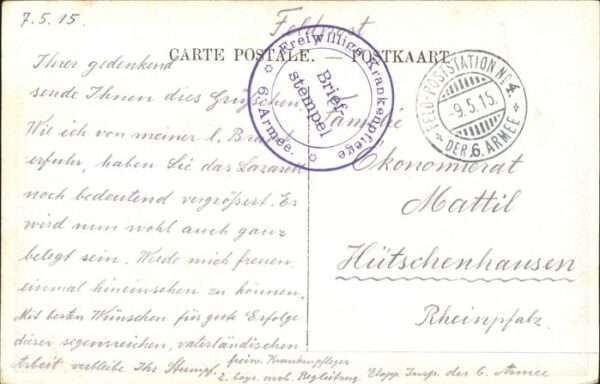 7.5.15.
Feldpost
CARTE POSTALE. — POSTKAART.
Freiwillige Krankenpflege
6. Armee.
Brief-
stempel
FELD-POSTSTATION No. 4.
-9.5.15.
DER 6. ARMEE
Ihrer gedenkend
sende Ihnen dies Grüßchen.
Wie ich von meiner l. Braut
erfuhr, haben Sie das Lazarett
noch bedeutend vergrößert. Es
wird nun wohl auch ganz
belegt sein. Werde mich freuen
einmal hineinsehen zu können.
Mit besten Wünschen für gute Erfolge
dieser segensreichen, vaterländischen
Arbeit verbleibe Ihr Stumpf.
freiw. Krankenpfleger
2. bayr. mob. Begleitzug. Etapp. Insp. der 6. Armee
Familie
Ökonomierat
Mattil
Hütschenhausen
Rheinpfalz.